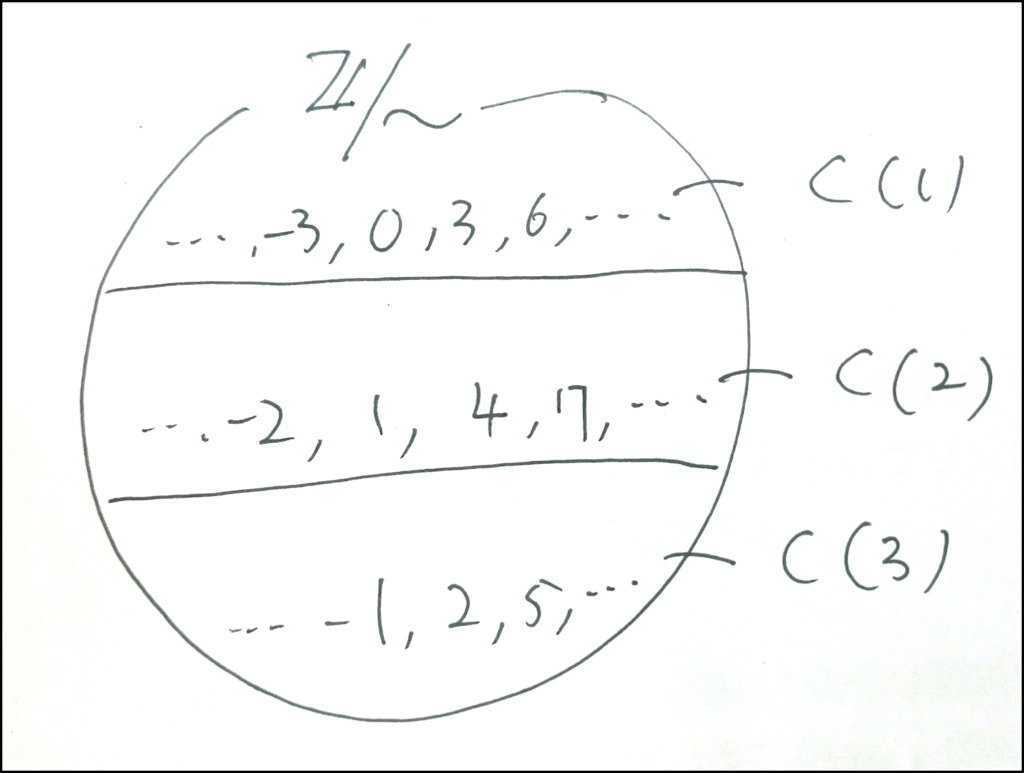 ℤ/~
..., -3, 0, 3, 6, ... C(1)
... -2, 1, 4, 7, ... C(2)
... -1, 2, 5, ... C(3)